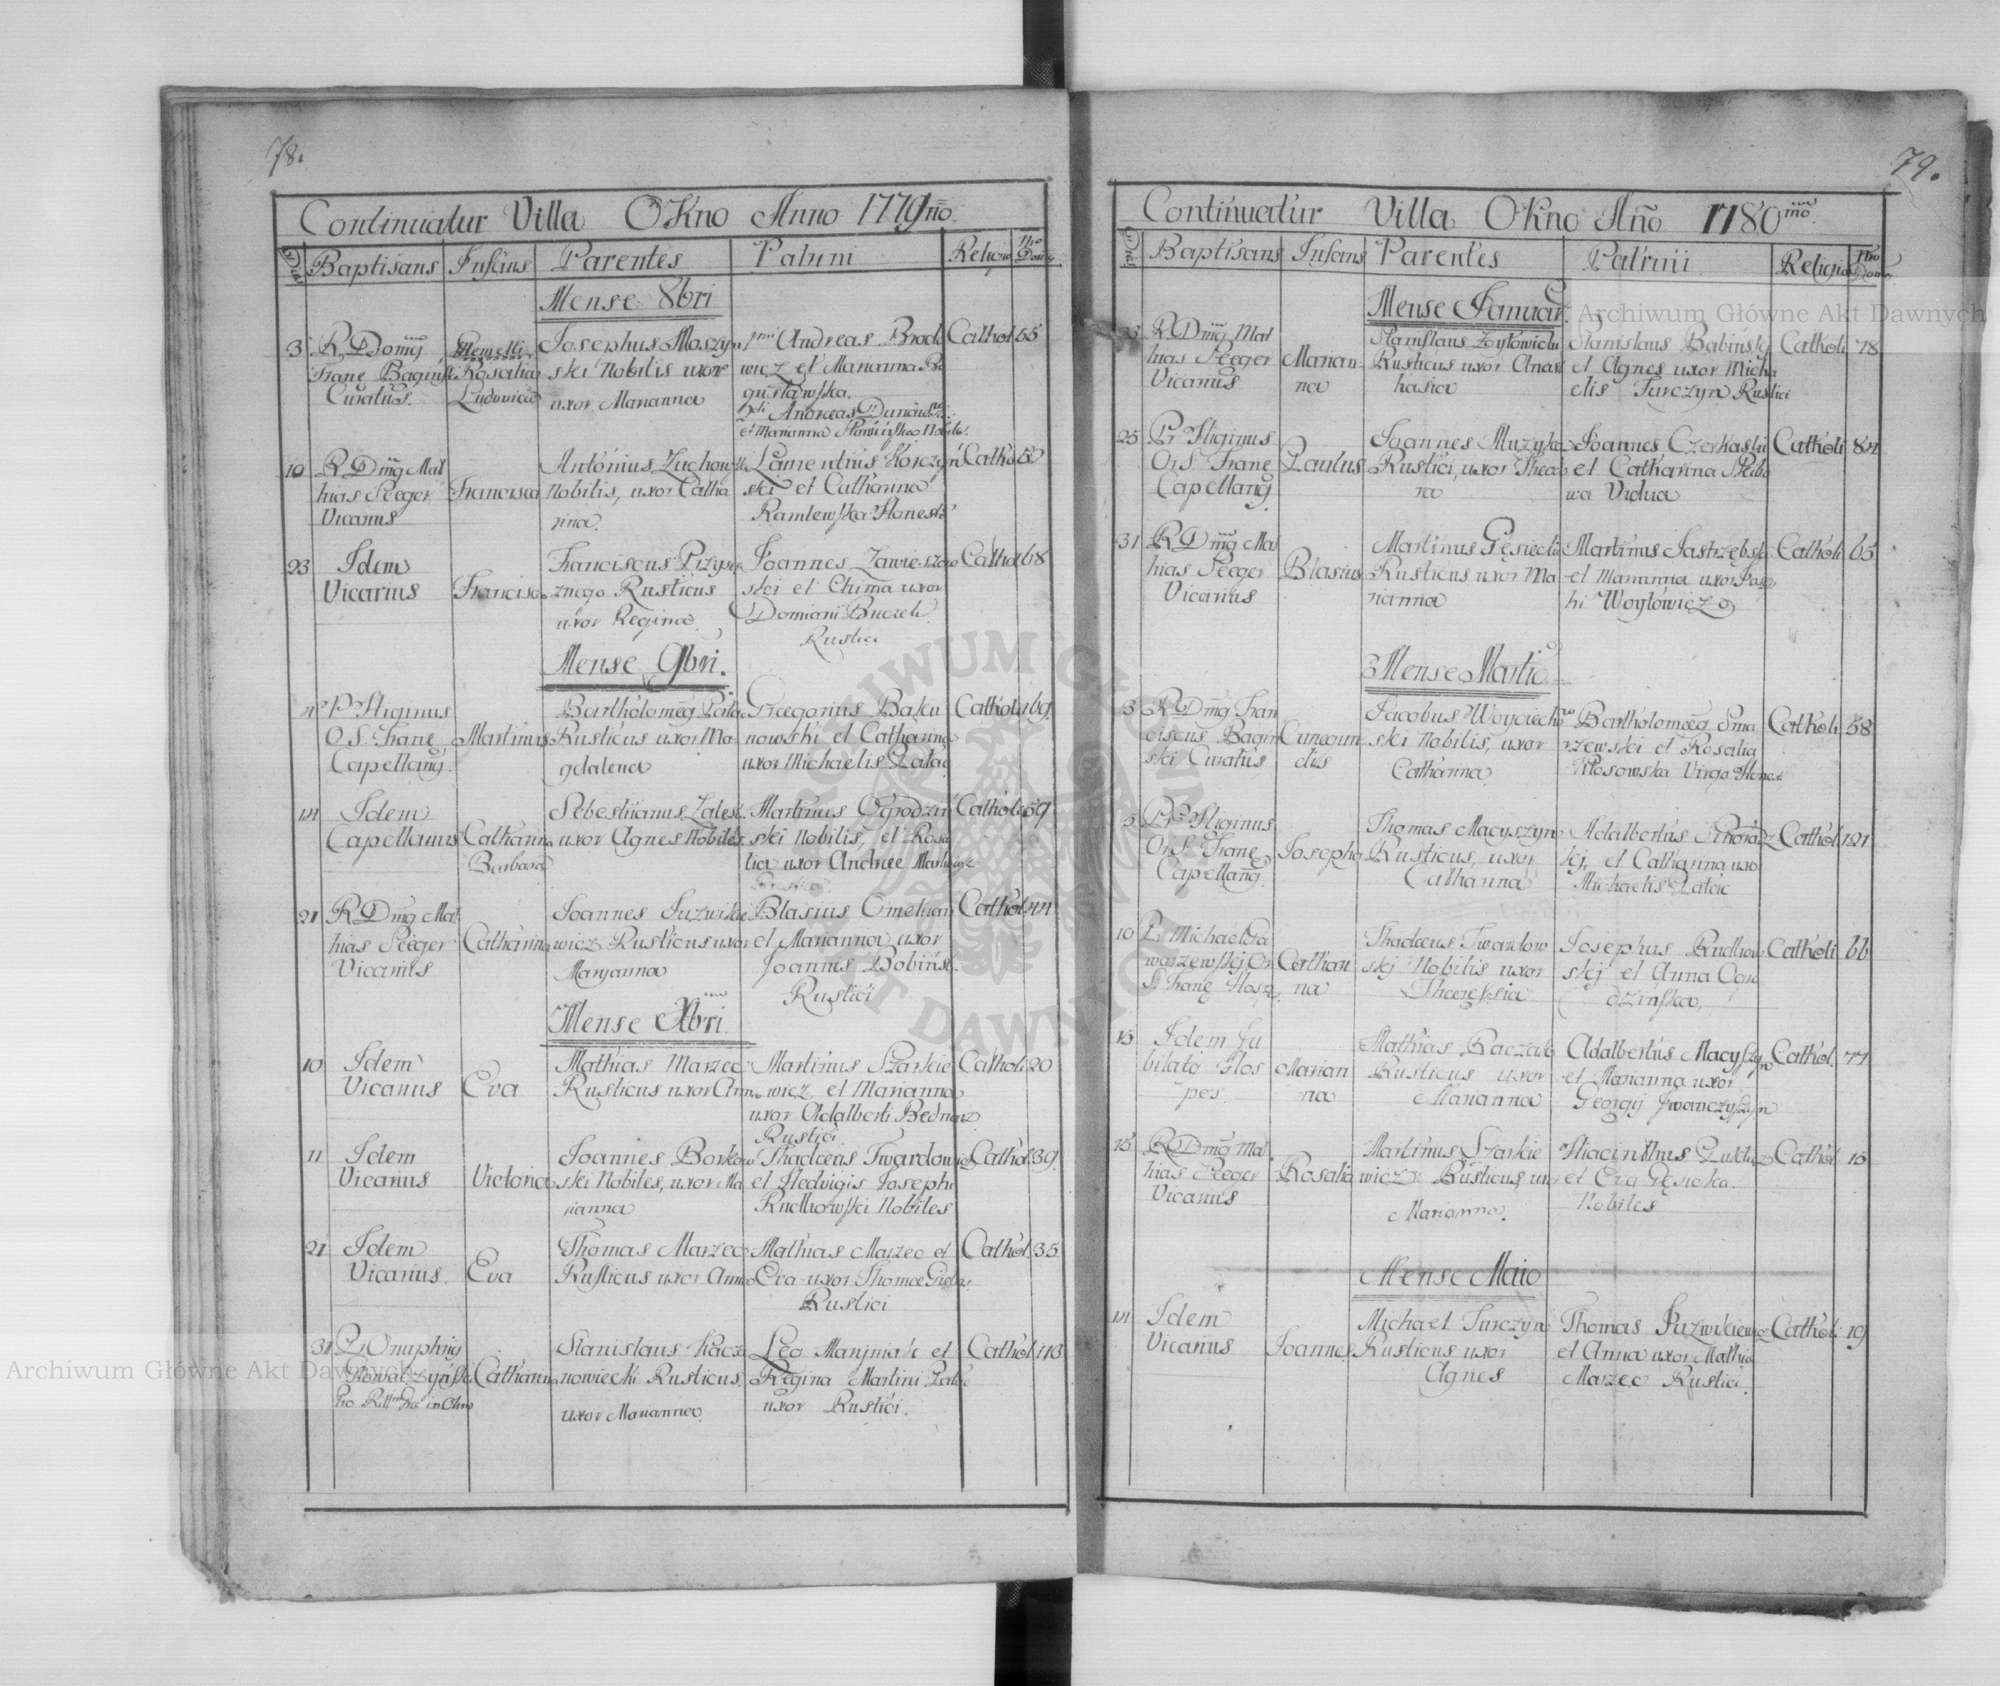 78.
Continuatur Villa OKno Anno 1779no.
Dies Baptisans Infans Parentes Patrini Religio Nro Domus
Mense 8bri
3 R. Domg Franc Bagińsk Curatus
Gemelli Rosalia Ludovica
Josephus Moszyn
ski Nobilis uxor
uxor Marianna
pmi Andreas Brodo
wicz et Marianna Bo
gusławska.
2di Andreas
et Marianna Nobile.
Cathol 55
10 R Dmg Mat
hias Seeger
Vicarius
Francisca
Antonius Zuchow
Nobilis, uxor Catha
rina.
Laurentius Korczyń
ski et Catharina
Ramlewska Honesti
Cathol
23 Idem
Vicarius
Francisca
Franciscus Przysię
znego Rusticus
uxor Regina
Joannes Zawieszcow
ski et Chima uxor
Damiani Buczek
Rustici
Cathol 68
Mense 9bri.
4 P Higinus
O S Franc
Capellang
Martinus
Bartholomeg Pata
Rusticus uxor Ma
gdalena
Gregorius Baku
nowski et Catharina
uxor Michaelis Pałac
Catholi 69
14 Idem
Capellanus
Catharina
Barbara
Sebestianus Zalesk
uxor Agnes Nobiles
Martinus Ogrodziń
ski Nobilis, et Rosa
lia uxor Andree
Catholi 59
21 R Dmg Mat
hias Seeger
Vicarius
Catharina
Joannes Juzwikie
wicz Rusticus uxor
Maryanna
Blasius Omelian
et Marianna uxor
Joannis Bobińsk
Rustici
Cathol 44
Mense Xbri.
10 Idem
Vicarius
Eva
Mathias Marzec
Rusticus uxor Anna
Martinus Szarkie
wicz et Marianna
uxor Adalberti Bednarz
Rustici
Catholi 20
11 Idem
Vicarius
Victoria
Joannes Borkow
ski Nobiles, uxor Ma
rianna
Thadeus Twardowski
et Hedvigis Josephi
Rudkowski Nobiles
Cathol 39.
21 Idem
Vicarius.
Eva
Thomas Marzec
Rusticus uxor Anna
Mathias Marzec et
Eva uxor Thomae
Rustici
Cathol 35.
31 P. Onuphrig
Catharina
Stanislaus Kacza
nowiecki Rusticus.
uxor Marianna.
Leo Marymak et
Regina Martini Pałac
uxor Rustici.
Catholi 113
79.
Continuatur Villa OKno Año 1780mo.
Dies Baptisans Infans Parentes Patrini Religio Nro Domus
Mense Januar.
R Dmg Mat
hias Seeger
Vicarius
Marian
na
Stanislaus Zoytowicki
Rusticus uxor Anas
tasia
Stanislaus Babińsk
et Agnes uxor Micha
elis Turczyn Rustici
Catholi 78
25 Pr Higinus
Or S. Franc
Capellang
Paulus
Joannes Muzyka
Rustici, uxor Theodo
ra
Joannes Czerkaski
et Catharina
wa Vidua
Catholi 84
31 R Dmg Mat
hias Seeger
Vicarius
Blasius
Martinus Gęsiecki
Rusticus uxor Ma
rianna
Martinus Jastrzębsk
et Marianna uxor
Woytowicz
Catholi 65
Mense Martio
3 R Dmg Fran
ciscus Bagiń
ski Curatus
Cunegun
dis
Jacobus Woyciecho
ski Nobilis, uxor
Catharina
Bartholomeg Sma
rzewski et Rosalia
Kłosowska Virgo Honest
Catholi 58
5 Pr Higinus
Or S. Franc
Capellang
Josepha
Thomas Macyszyn
Rusticus, uxor
Catharina
Adalbertus
skj, et Catharina uxor
Michaelis Pałac
Cathol. 121
10 Pr Michael
S Franc Hosp
Cathari
na
Thadeus Twardow
skj Nobilis uxor
Theressia
Josephus Rudkow
skj et Anna
dzińska,
Catholi 66
15 Idem Ju
bilato Hos
pes.
Marian
na
Mathias Baczak
Rusticus uxor
Marianna
Adalbertus Macyszyn
et Marianna uxor
Georgij Iwanczyszyn
Cathol. 77
15 R Dmg Mat
hias Seeger
Vicarius
Rosalia
Martinus Szarkie
wicz Rusticus, uxor
Marianna.
Hiacinthus
et Eva Gęsicka.
Nobiles
Cathol. 15
Mense Maio
14 Idem
Vicarius
Joannes
Michael Turczyn
Rusticus uxor
Agnes
Thomas Juzwikiewicz
et Anna uxor Mathia
Marzec Rustici.
Catholi 19
Archiwum Główne Akt Dawnych
Archiwum Główne Akt Dawnych
ARCHIWUM GŁÓWNE AKT DAWNYCH